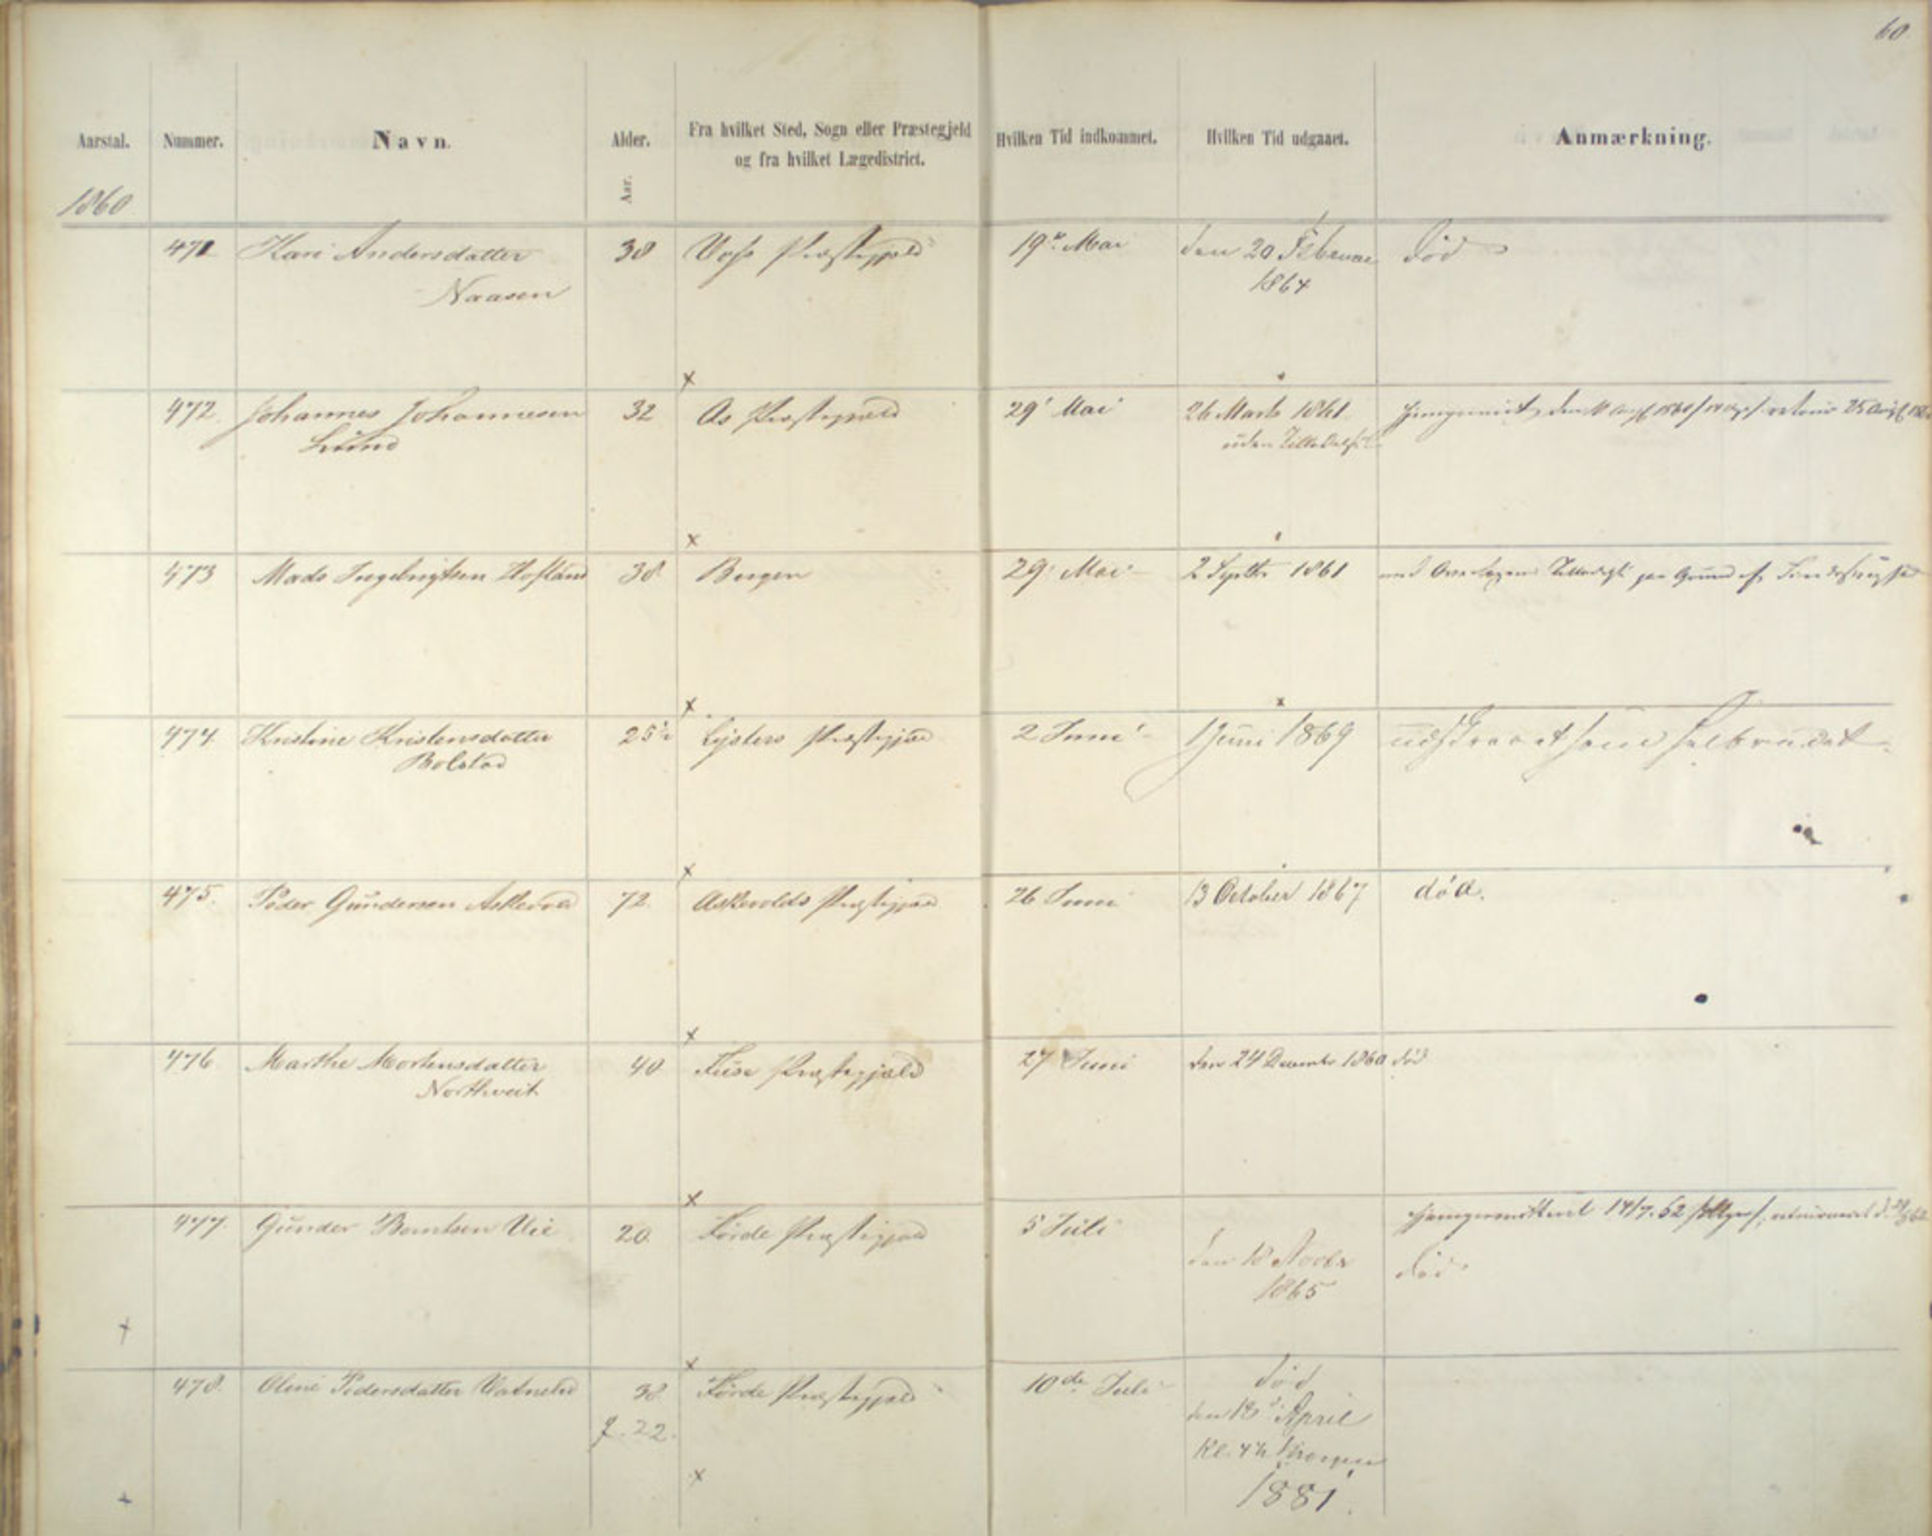 60.
Aarstal. Nummer. Navn. Alder. Fra hvilket Sted, Sogn eller Præstegjeld Hvilken Tid indkommet. Hvilken Tid udgaaet. Anmærkning.
og fra hvilket Lægedistrict.
Aar.
1860
471 Kari Andersdatter 38 Voss Præstegjeld 19de Mai den 20 Februar død
Naasen 1864
x
472 Johannes Johannesen 32 Os Præstegjeld 29' Mai 26 Marts 1861
Lund uden Tilladelse
x
473 Mads Ingebrigtsen Hofland 38 Bergen 29' Mai 2 Septbr 1861 med Overlægens Tilladelse paa Grund af
x x
474 Kristine Kristensdatter 25½ Lysters Præstegjeld 2 Juni 1 Juni 1869 udskrevet som helbredet
Bolstad
x
475. Peder Gundersen Askevold 72 Askevolds Præstegjeld 26 Juni 13 October 1867 død.
x
476 Marthe Mortensdatter 40 Fuse Præstegjeld 27 Juni den 24 December 1860 død
Northveit
x
477. Gunder Berntsen Vie 20. Førde Præstegjeld 5 Juli hjempermitteret 14/7. 62
den 18 Novbr død
1865
x
478. Oline Pedersdatter 38 Førde Præstegjeld 10de Juli død
22. den 18de April
x Kl. 4½ Morgen
1881.